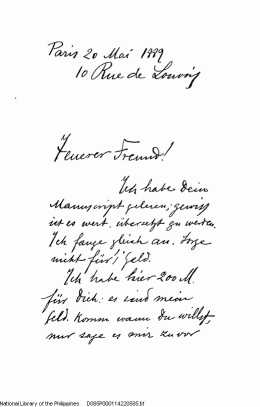 Paris 20 Mai 1889
10 Rue de Louvois
Teuerer Freund!
Ich habe Dein
Manuscript gelesen; gewiss
ist es wert, übersetzt zu werden.
Ich fange gleich an. Sorge
nicht für's Geld.
Ich habe hier 200 M.
für Dich: es sind mein
Geld. Komm wann Du willst,
nur sage es mir zuvor
National Library of the Philippines D085R000114220585.tif